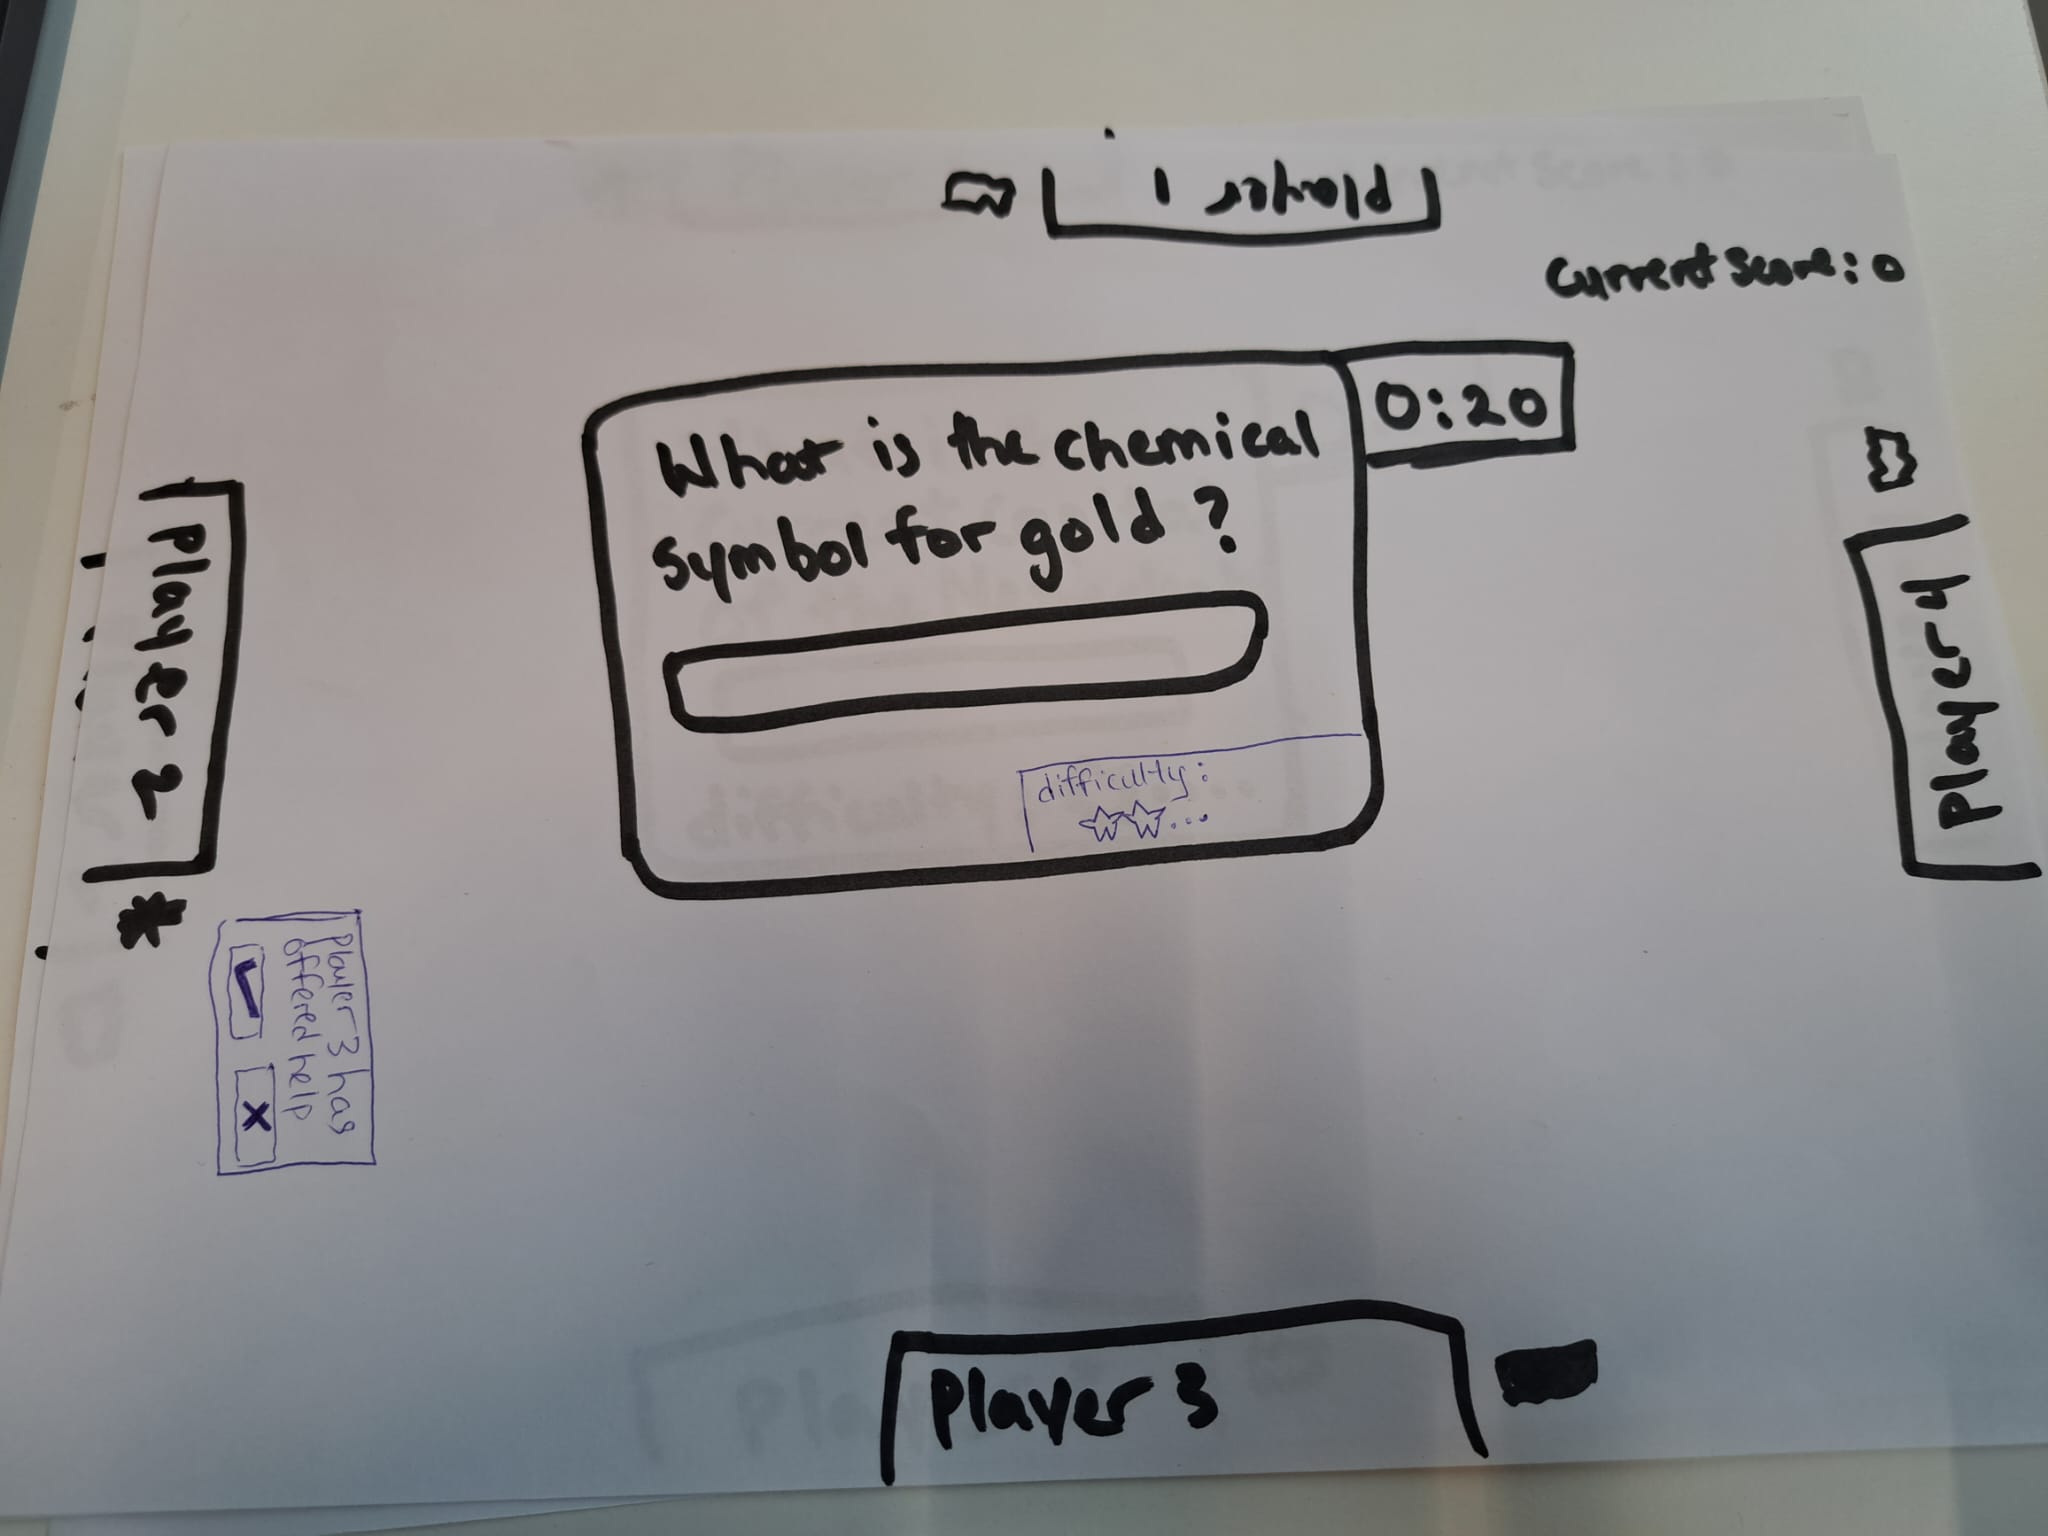 Player 1
Current Score: 0
0:20
What is the chemical
symbol for gold?
difficulty:
...
Player 2
*
Player 3 has
offered help
✓ X
Player 4
Player 3